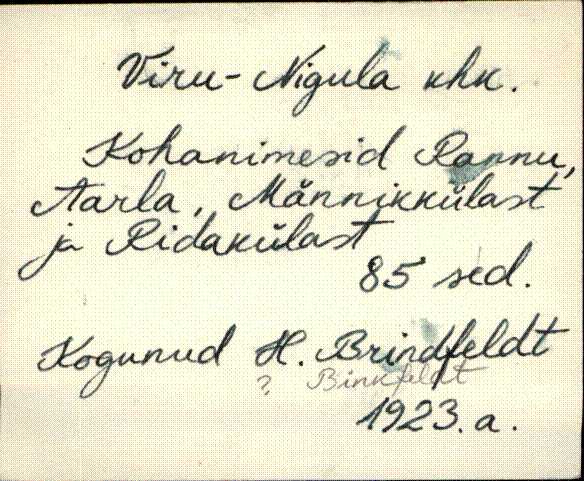 Viru-Nigula khk.
Kohanimesid Rannu,
Aarla, Männikkülast
ja Ridakülast
85 sed.
Kogunud H. Brindfeldt
? Binkfeldt
1923.a.